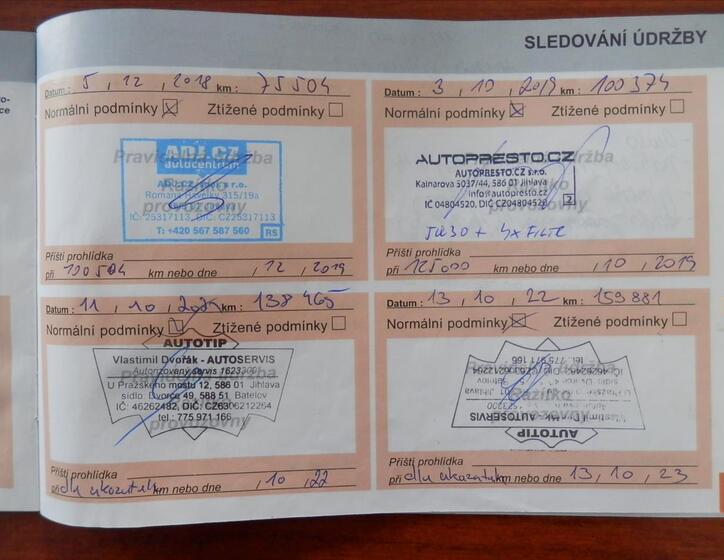 SLEDOVÁNÍ ÚDRŽBY
Datum : 5 , 12 , 2018 km : 75504
Normální podmínky Ztížené podmínky
Pravidelná údržba
Razítko
provozovny
ADJ.CZ
autocentrum
315/19a
IČ: 25317113, DIČ: CZ25317113
T: +420 567 587 560
RS
Příští prohlídka
při 100504 km nebo dne , 12 , 2019
Datum : 3 , 10 , 2019 km : 100374
Normální podmínky Ztížené podmínky
AUTOPRESTO.CZ
AUTOPRESTO.CZ s.r.o.
Kainarova 5037/44, 586 01 Jihlava
info@autopresto.cz
IČ 04804520, DIČ CZ04804520
2
5W30 + 4x FILTR
Příští prohlídka
při 125000 km nebo dne , 10 , 2019
Datum : 11 , 10 , km : 138465
Normální podmínky Ztížené podmínky
AUTOTIP
Vlastimil Dvořák - AUTOSERVIS
Autorizovaný servis 1623300
U Pražského mostu 12, 586 01 Jihlava
sídlo: Dvorce 49, 588 51 Batelov
IČ: 46262482, DIČ: CZ6306212264
tel.: 775 971 166
provozovny
Příští prohlídka
při dle ukazatele km nebo dne , 10 , 22
Datum : 13 , 10 , 22 km : 159881
Normální podmínky Ztížené podmínky
tel.: 775 971 166
Razítko
provozovny
AUTOSERVIS
AUTOTIP
Příští prohlídka
při dle ukazatele km nebo dne 13 , 10 , 23